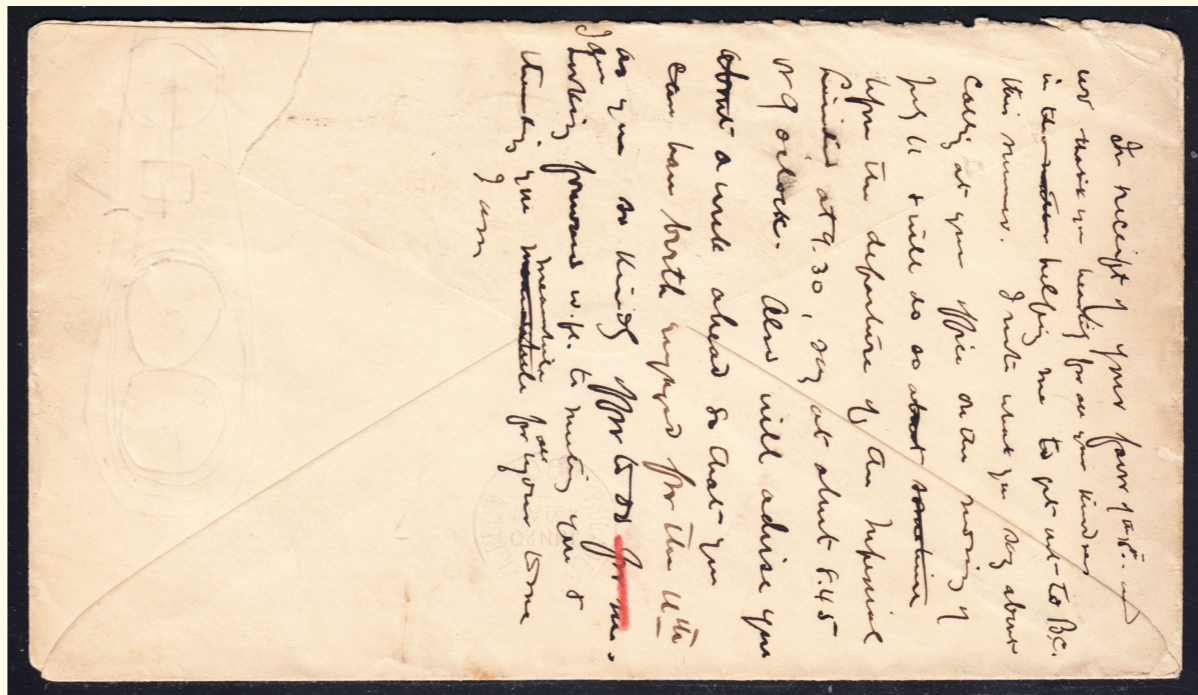 In receipt of your favor of the 15th. and
now thank you heartily for all your kindness
in the matter helping me to get out to B.C.
this summer. I note what you say about
calling at your office on the morning of
July 11 & will do so about sometime
upon the departure of the Imperial
Limited at 9.30, say at about 8.45
or 9 o'clock. Also will advise you
about a week ahead so that you
can have berth engaged for the 11th
as you so kindly offer to do for me.
I am looking forward w.p. to meeting you &
thanking you meantime for all your
I am